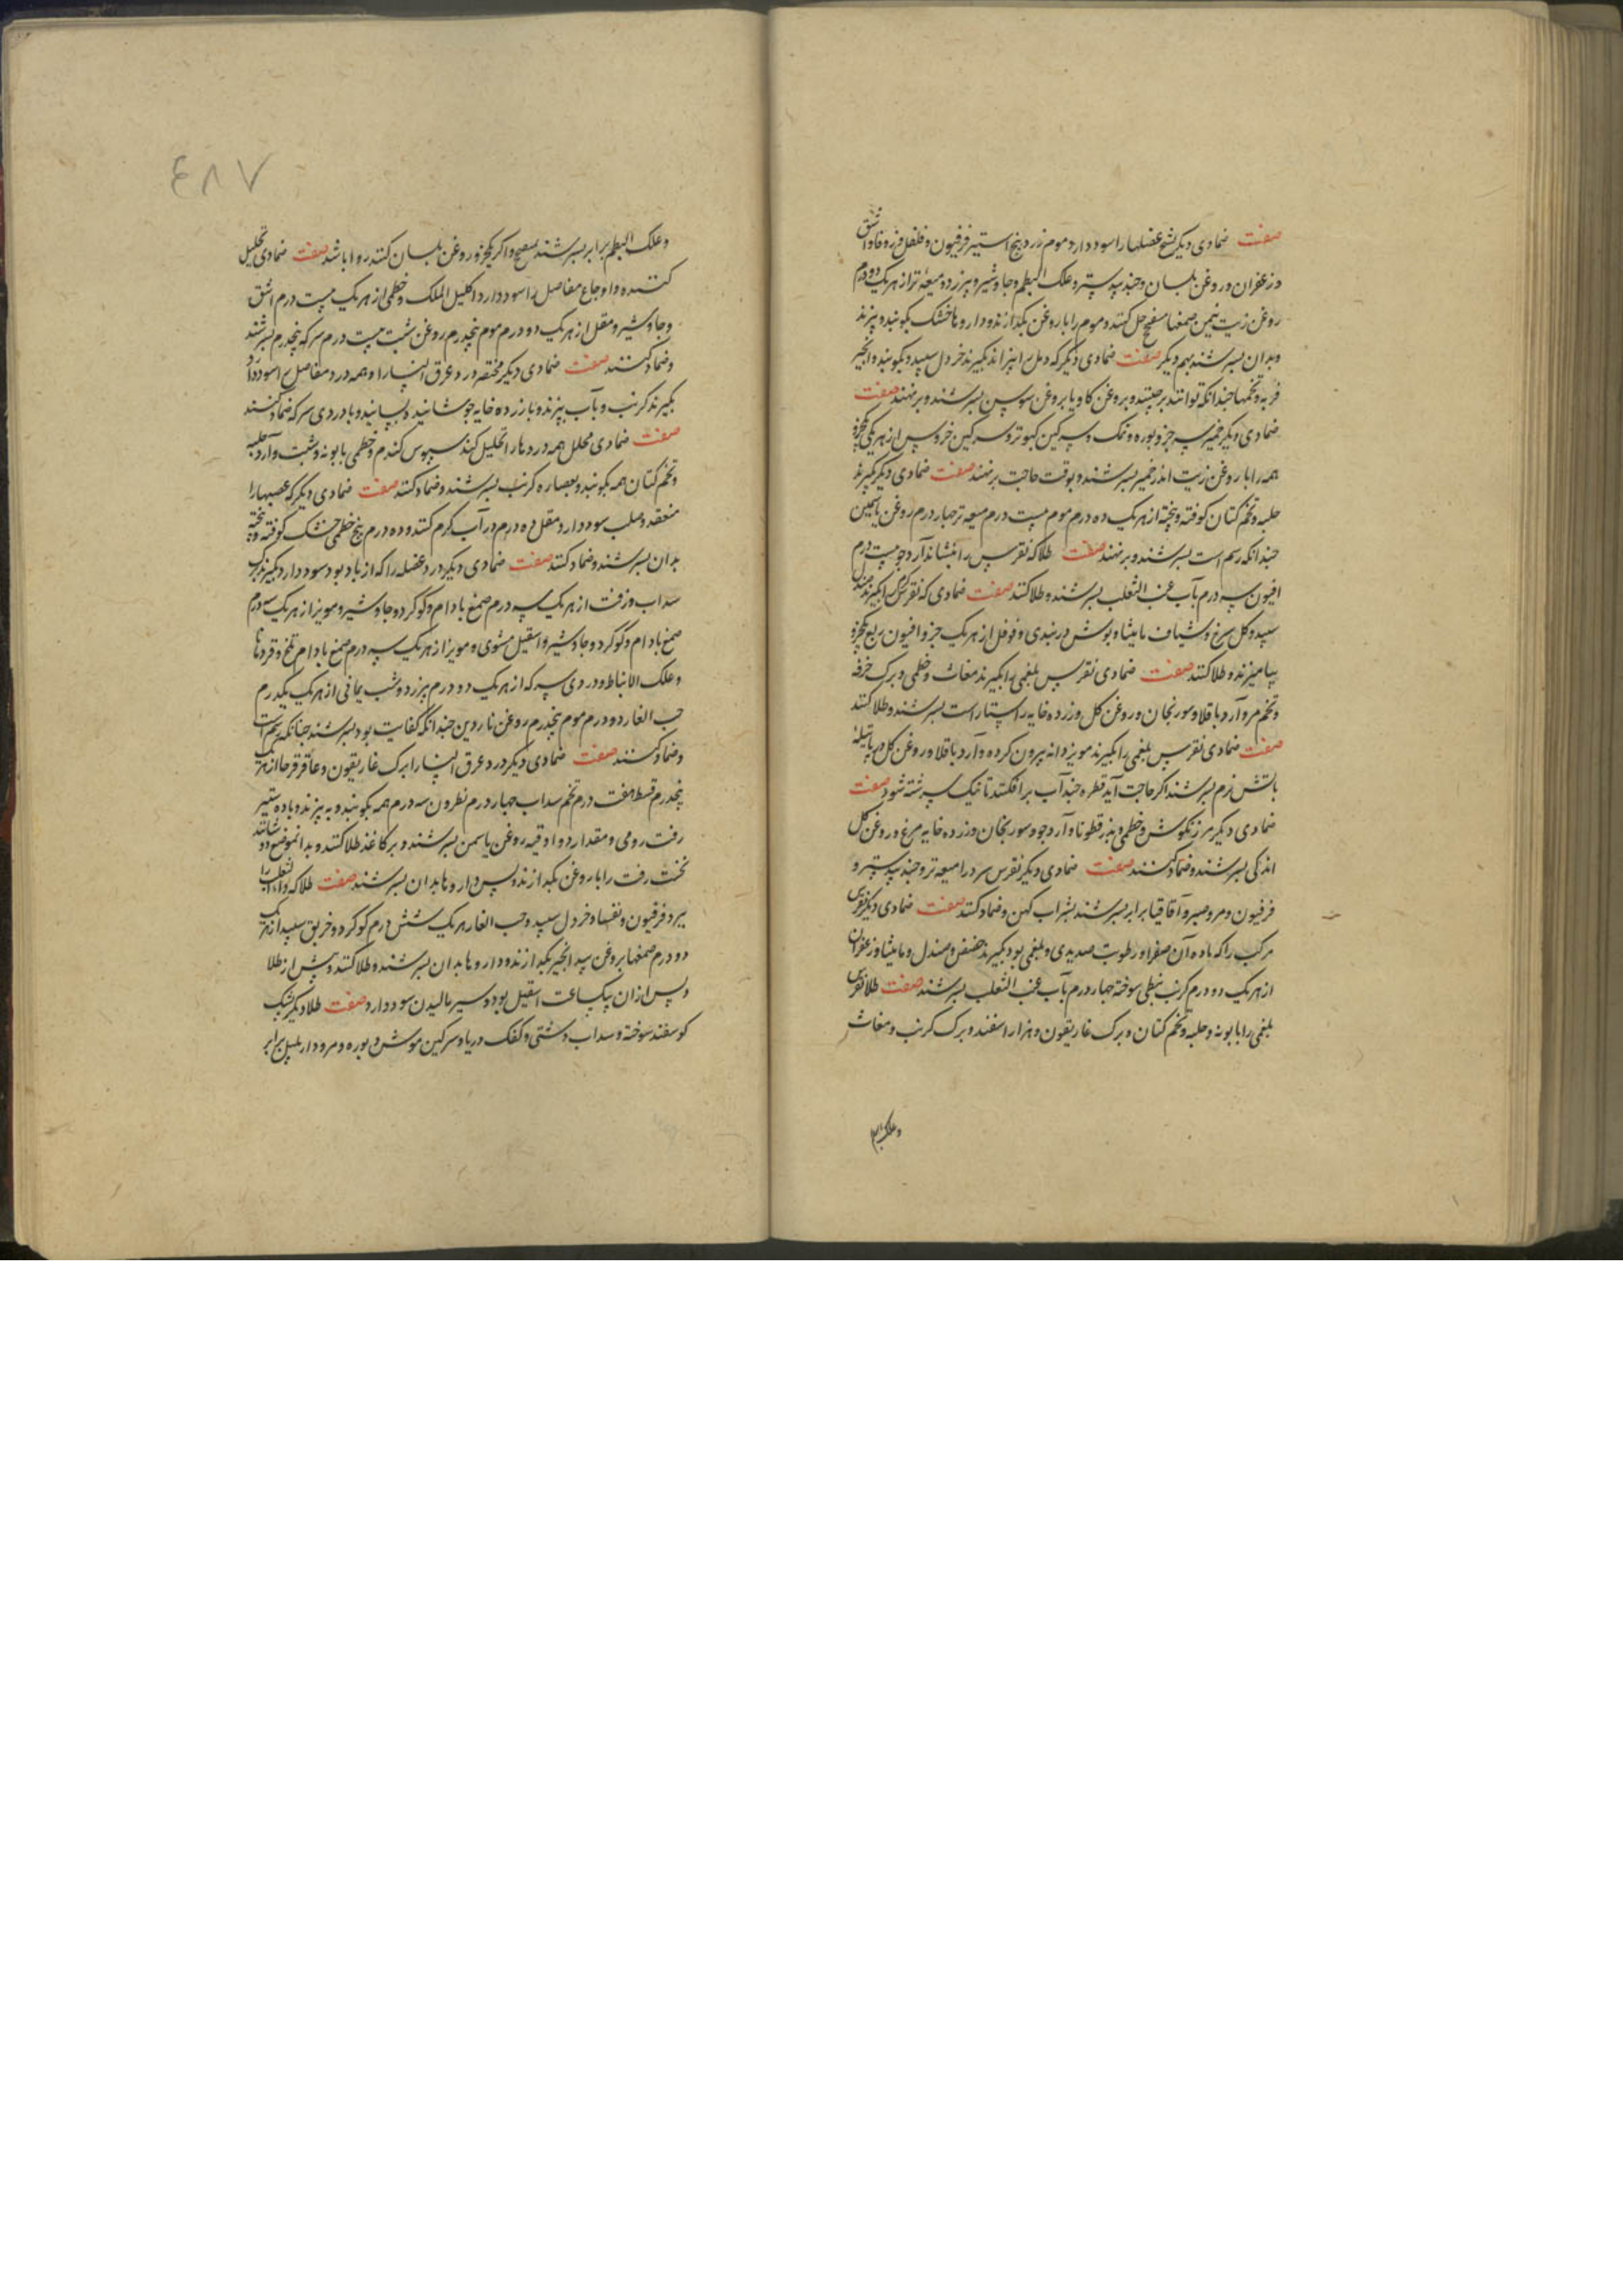 صفت ضمادی دیگر تشنج عضلها را سود دارد موم زرد پنج استیر فرفیون و فلفل و زوفا و اشق
و زعفران و روغن بلسان و جندبیدستر و علک البطم و جاوشیر و بیرزد و میعهٔ تر از هر یک دو درم
روغن زیت نیمن صمغها بمیفختج حل کنند و موم را با روغن بکدازند و داروها خشک بکوبند و ببزند
و بدان بسرشند بهم دیگر صفت ضمادی دیگر که دمل را بپزاند بگیرند خردل سپید و بکوبند و انجیر
فربه و تخمها جندانکه توانند بر جینند و بروغن کاو یا بروغن سوسن بسرشند و برنهند صفت
ضمادی دیگر خمیر سه جزو بوره و نمک و سرکین کبوتر و سرکین خروس از هر یکی یکجزو
همه را با روغن زیت اندر خمیر بسرشند و بوقت حاجت برنهند صفت ضمادی دیگر بگیرند
حلبه و تخم کتان کوفته و بیخته از هر یک ده درم موم بیست درم میعه تر جهار درم روغن یاسمین
جندانکه رسم است بسرشند و برنهند صفت طلا که نقرس را بنشاند آرد جو بیست درم
افیون سه درم بآب عنب الثعلب بسرشند و طلا کنند صفت ضمادی که نقرس کرم را بگیرند صندل
سپید و کل سرخ و شیاف مامیثا و بوش دربندی و فوفل از هر یک جزو افیون ربع یکجزو
بیامیزند و طلا کنند صفت ضمادی نقرس بلغمی را بگیرند مغاث و خطمی و برک خرفه
و تخم مرو آرد باقلا و سورنجان و روغن کل و زرده خایه راستا راست بسرشند و طلا کنند
صفت ضمادی نقرس بلغمی را بگیرند مویز دانه بیرون کرده و آرد باقلا و روغن کل در پاتیله
باتش نرم بسرشند اکر حاجت آید قطره جند آب برافکنند تا نیک سرشته شود صفت
ضمادی دیگر مرزنکوش و خطمی و بذر قطونا و آرد جو و سورنجان و زرده خایه مرغ و روغن کل
اندکی بسرشند و ضماد کنند صفت ضمادی دیگر نقرس سرد را میعه تر و جندبیدستر و
فرفیون و مر و صبر و آقاقیا برابر بسرشند بشراب کهن و ضماد کنند صفت ضمادی دیگر نقرس
مرکب را که ماده آن صفرا و رطوبت صدیدی و بلغمی بود بگیرند حضض و صندل و مامیثا و زعفران
از هر یک دو درم کرنب نبطی سوخته جهار درم بآب عنب الثعلب بسرشند صفت طلا نقرس
بلغمی را بابونه و حلبه و تخم کتان و برک غاریقون و هزار اسفند و برک کرنب و مغاث
و علک
٤٨٧
و علک البطم برابر بسرشند بمیفختج و اکر یکجزو روغن بلسان کنند روا باشد صفت ضمادی تحلیل
کننده و اوجاع مفاصل را سود دارد اکلیل الملک و خطمی از هر یک بیست درم اشق
و جاوشیر و مقل از هر یک دو درم موم پنجدرم روغن شبت بیست درم سرکه پنجدرم بسرشند
و ضماد کنند صفت ضمادی دیگر مختصر درد عرق النسا را و همه درد مفاصل را سود دارد
بگیرند کرنب و بآب بپزند و با زرده خایه جوشانیده بسایند و با دردی سرکه ضماد کنند
صفت ضمادی محلل همه دردها را تحلیل کند سبوس کندم و خطمی بابونه و شبت و آرد حلبه
و تخم کتان همه بکوبند و بعصاره کرنب بسرشند و ضماد کنند صفت ضمادی دیگر که عصبها را
منعقد و صلب سود دارد مقل ده درم در آب کرم کنند و ده درم بیخ خطمی خشک کوفته و بیخته
بدان بسرشند و ضماد کنند صفت ضمادی دیگر درد عضله را که از باد بود سود دارد بگیرند برک
سداب و زفت از هر یک سه درم صمغ بادام و کوکرد و جاوشیر و مویز از هر یک سه درم
صمغ بادام و کوکرد و جاوشیر و اسقیل مشوی و مویز از هر یک سه درم صمغ بادام تلخ و قردمانا
و علک الانباط و دردی سرکه از هر یک دو درم بیرزد و شب یمانی از هر یک یکدرم
حب الغار دو درم موم پنجدرم روغن ناردین جندانکه کفایت بود بسرشند جنانکه رسم است
و ضماد کنند صفت ضمادی دیگر درد عرق النسا را برک غاریقون و عاقرقرحا از هر یک
پنجدرم قسط هفت درم تخم سداب جهار درم نطرون سه درم همه بکوبند و ببیزند و با ده ستیر
زفت رومی و مقدار دو اوقیه روغن یاسمن بسرشند و بر کاغذ طلا کنند و بدانموضع دوشانند
نخست زفت را با روغن بکدازند و پس داروها بدان بسرشند صفت طلا که داء الثعلب را
ببرد فرفیون و ثفسیا و خردل سپید و حب الغار هر یک شش درم کوکرد و خربق سپید از هر یک
دو درم صمغها بروغن بید انجیر بکدازند و داروها بدان بسرشند و طلا کنند و پیش از طلا
و پس ازان بیکساعت اسقیل بود و سیر مالیدن سود دارد صفت طلا دیگر پشک
کوسفند سوخته و سداب دشتی و کفک دریا و سرکین موش و بوره و مر و دار پلپل برابر